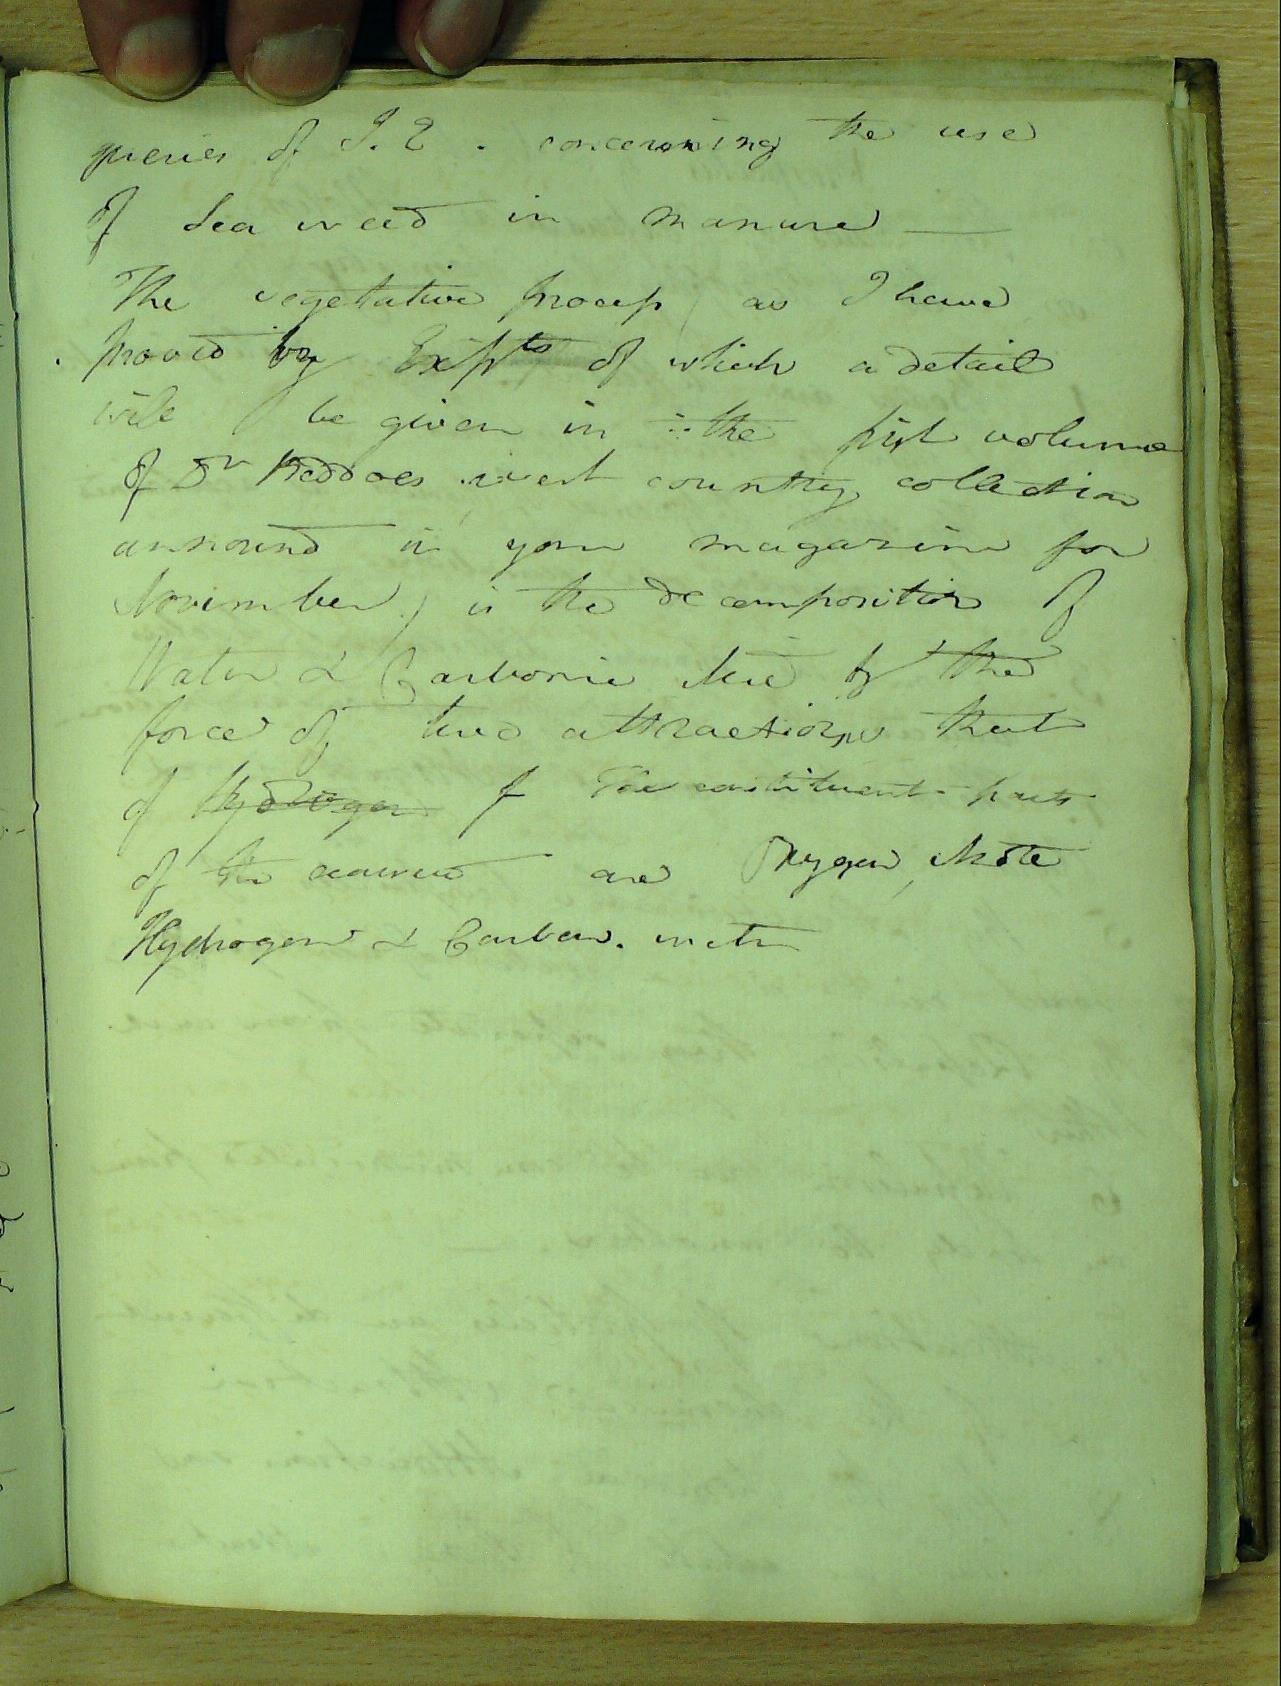 queries of I. E. concerning the use
of Sea weed in manure —
The vegetative process (as I have
proved by Expts of which a detail
will be given in the first volume
of Dr Beddoes west country collection
annound in your magazine for
November) is the decomposition of
Water & Carbonic Acid by the
force of two attractions that
of Hydrogen of The constituent parts
of the are Oxygen, Azote
Hydrogen & Carbon.